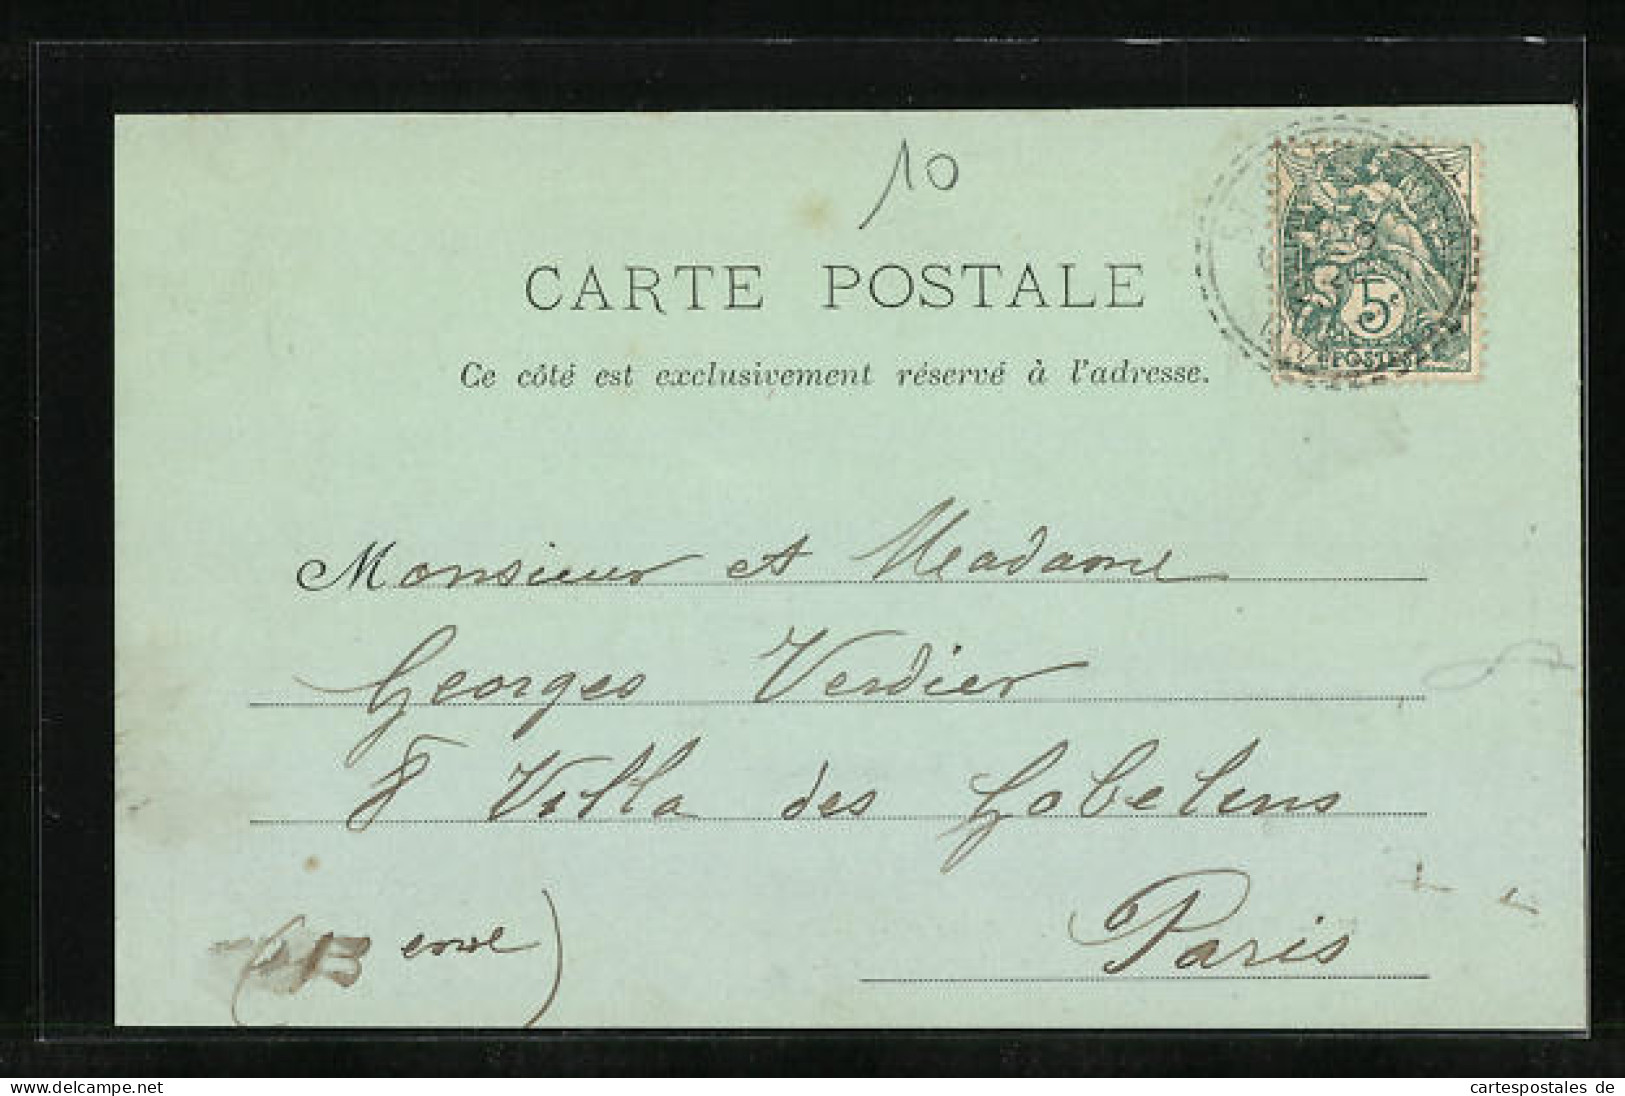 10
CARTE POSTALE
Ce côté est exclusivement réservé à l'adresse.
5c
POSTES
Monsieur et Madame
Georges Verdier
8 Villa des Gobelins
Paris
(13 eme)
www.delcampe.net
cartespostales de